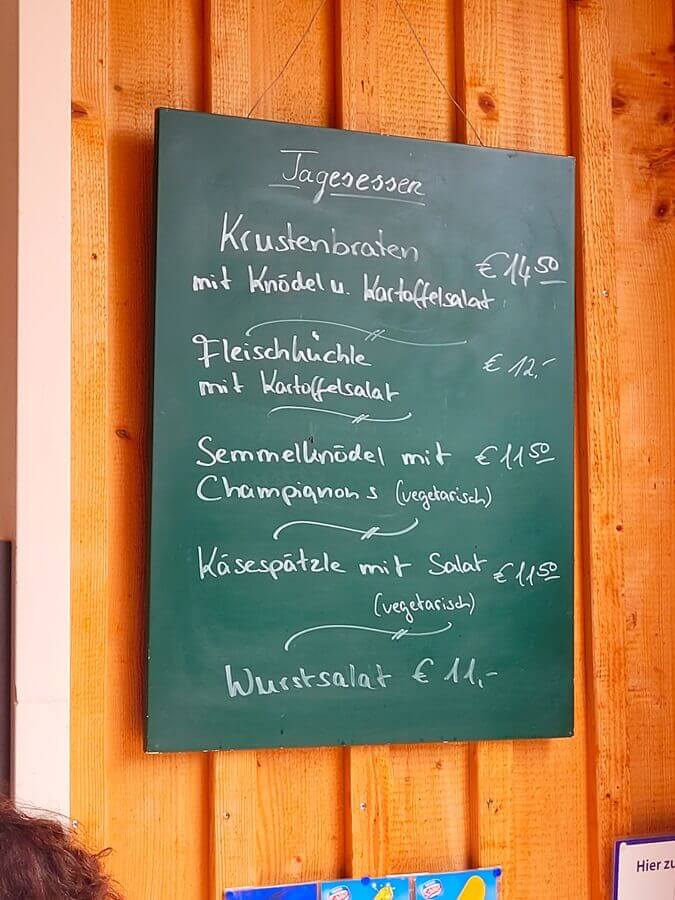 Tagesessen
Krustenbraten
€ 14 50
mit Knödel u. Kartoffelsalat
Fleischküchle
€ 12,-
mit Kartoffelsalat
Semmelknödel mit € 11 50
Champignons (vegetarisch)
Käsespätzle mit Salat € 11 50
(vegetarisch)
Wurstsalat € 11,-
Hier zu